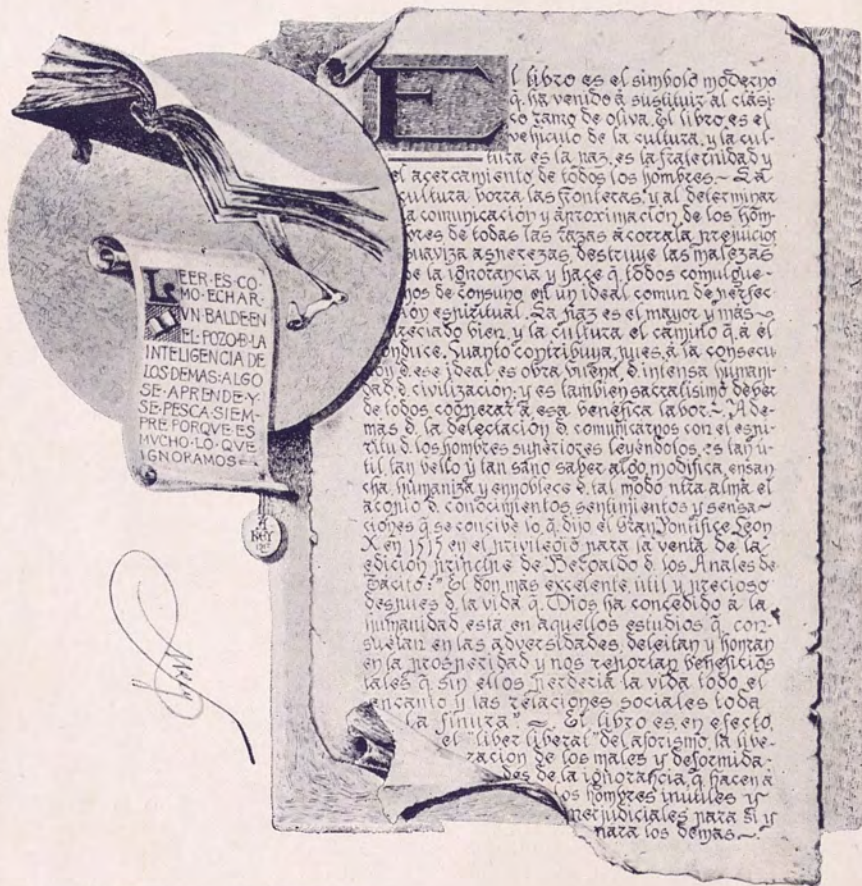 El libro es el simbolo moderno
q. ha venido á sustituir al clási
co ramo de oliva. El libro es el
vehiculo de la cultura, y la cul-
tura es la paz, es la fraternidad y
el acercamiento de todos los hombres.~ La
cultura borra las fronteras, y al determinar
la comunicación y aproximación de los hom-
bres de todas las razas acorrala prejuicios
suaviza asperezas, destruye las malezas
de la ignorancia y hace q. todos comulgue-
mos de consuno en un ideal comun de perfec
ción espiritual. La paz es el mayor y más~
preciado bien, y la cultura el camino q. á él
conduce. Cuanto contribuya, pues, á la consecu
ción d. ese ideal es obra buena, d. intensa humani-
dad, d. civilización; y es tambien sacratisimo deber
de todos cooperar á esa benéfica labor.~ Ade-
mas d. la delectación d. comunicarnos con el espi-
ritu d. los hombres superiores leyéndolos, es tan ú-
til, tan bello y tan sano saber algo, modifica, ensan
cha, humaniza y ennoblece d. tal modo ntra alma el
acopio d. conocimientos, sentimientos y sensa~
ciones q. se concibe lo q. dijo el Gran Pontifice Leon
X en 1515 en el privilegio para la venta de la
edición principe de Beroaldo d. los Anales de
Tácito: "El don mas excelente, útil y precioso
despues d. la vida q. Dios ha concedido á la
humanidad está en aquellos estudios q. con-
suelan en las adversidades, deleitan y honran
en la prosperidad y nos reportan beneficios
tales q. sin ellos perderia la vida todo el
encanto y las relaciones sociales toda
la finura" ~ El libro es, en efecto,
el "liber liberat" del aforismo, la libe-
ración de los males y deformida-
des de la ignorancia, q. hacen á
los hombres inútiles y
perjudiciales para si y
para los demas.~
LEER·ES·CO-
MO·ECHAR·
VN·BALDE EN
EL·POZO·D·LA
INTELIGENCIA DE
LOS DEMAS: ALGO
SE·APRENDE·Y
SE·PESCA·SIEM-
PRE PORQVE·ES
MVCHO·LO·QVE
IGNORAMOS